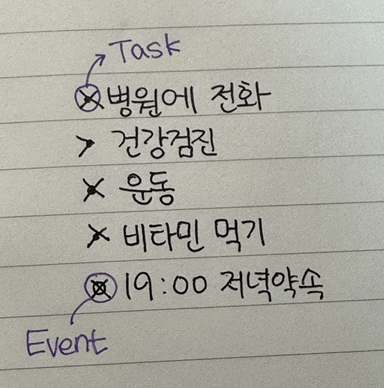 Task
× 병원에 전화
> 건강검진
× 운동
× 비타민 먹기
⊠ 19:00 저녁약속
Event